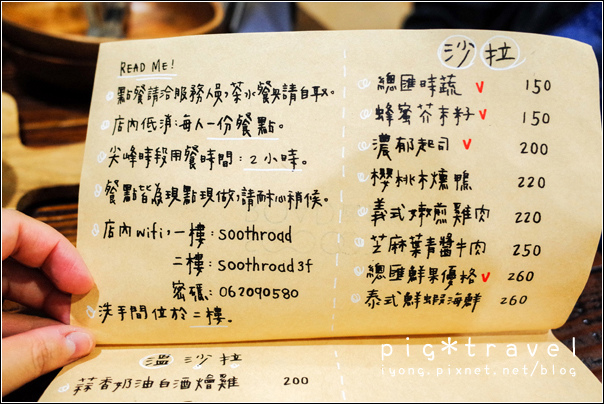 READ ME!
點餐請洽服務人員,茶水餐具請自取。
店內低消:每人一份餐點。
尖峰時段用餐時間:2小時。
餐點皆為現點現做,請耐心稍候。
店內wifi,一樓:soothroad
二樓:soothroad3f
密碼:062090580
洗手間位於二樓。
沙拉
總匯時蔬 v 150
蜂蜜芥末籽 v 150
濃郁起司 v 200
櫻桃木燻鴨 220
義式嫩煎雞肉 220
芝麻葉青醬牛肉 250
總匯鮮果優格 v 260
泰式鮮蝦海鮮 260
溫沙拉
蒜香奶油白酒燴雞 200
pig*travel
iyong.pixnet.net/blog